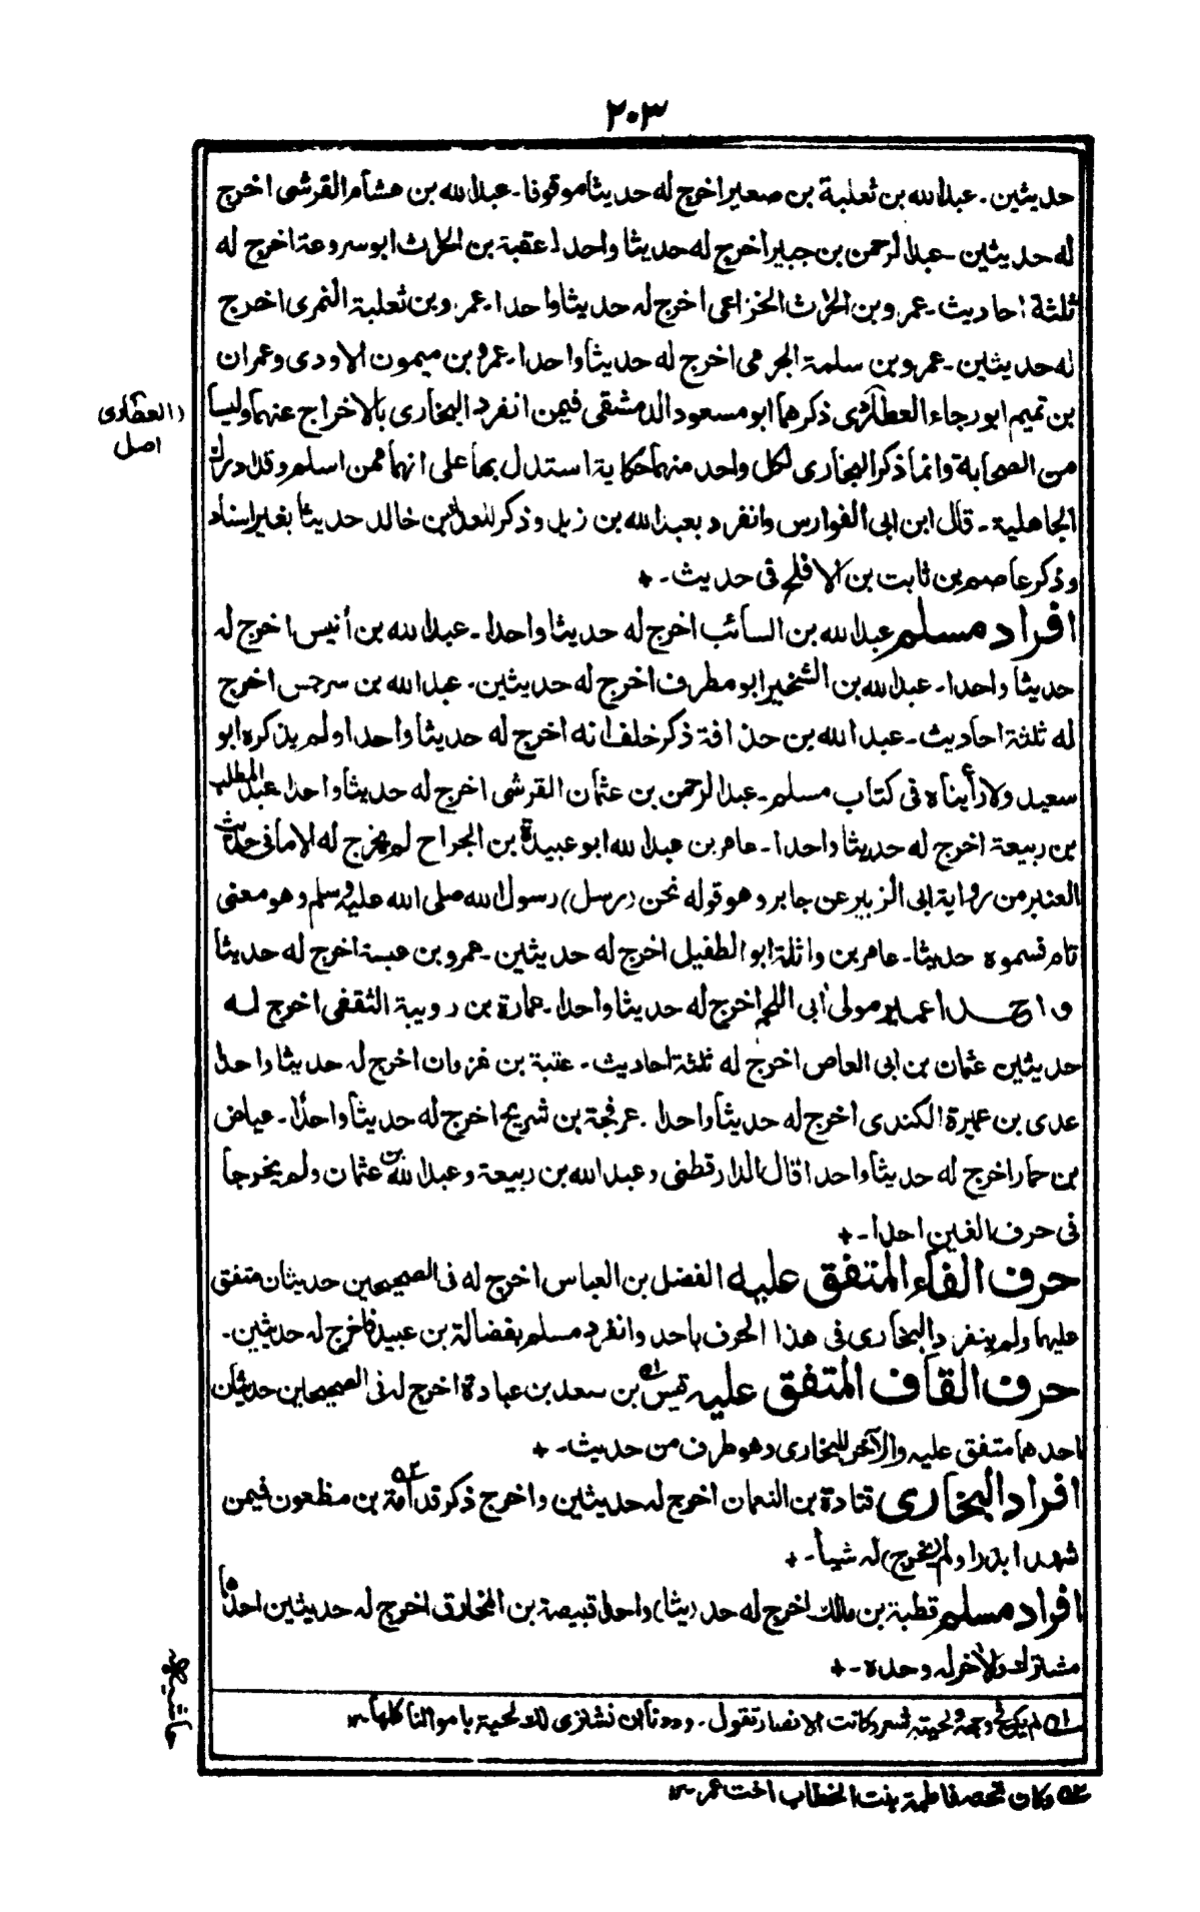 ٢٠٣
حديثين ـ عبدالله بن ثعلبة بن صعير اخرج له حديثا موقوفا ـ عبدالله بن هشام القرشى اخرج
له حديثين ـ عبدالرحمن بن جبير اخرج له حديثا واحدا عقبة بن الحرث ابو سروعة اخرج له
ثلثة احاديث ـ عمرو بن الحرث الخزاعى اخرج له حديثا واحدا ـ عمرو بن ثعلبة النمرى اخرج
له حديثين ـ عمرو بن سلمة الجرمى اخرج له حديثا واحدا ـ عمرو بن ميمون الاودى وعمران
بن تميم ابو رجاء العطاردى ذكرهما ابو مسعود الدمشقى فيمن انفرد البخارى بالاخراج عنهما وليسا
(العطاردى
اصل
من الصحابة وانما ذكر البخارى لكل واحد منهما حكاية استدل بها على انهما ممن اسلم وقد ادرك
الجاهلية ـ قال ابن ابى الفوارس وانفرد بعبدالله بن زيد وذكر بن خالد حديثا بغير اسناد
وذكر عاصم بن ثابت بن الافلح فى حديث ـ +
افراد مسلم عبدالله بن السائب اخرج له حديثا واحدا ـ عبدالله بن أنيس اخرج له
حديثا واحدا ـ عبدالله بن الشخير ابو مطرف اخرج له حديثين ـ عبدالله بن سرجس اخرج
له ثلثة احاديث ـ عبدالله بن حذافة ذكر خلف انه اخرج له حديثا واحدا ولم يذكره ابو
سعيد ولا رأيناه فى كتاب مسلم ـ عبدالرحمن بن عثمان القرشى اخرج له حديثا واحدا عبدالمطلب
بن ربيعة اخرج له حديثا واحدا ـ عامر بن عبدالله ابو عبيدة بن الجراح لم يخرج له الا ما فى حديث
العنبر من رواية ابى الزبير عن جابر وهو قوله نحن (رسل) رسول الله صلى الله عليه وسلم وهو معنى
تام فسموه حديثا ـ عامر بن واثلة ابو الطفيل اخرج له حديثين ـ عمرو بن عبسة اخرج له حديثا
واحدا عمير مولى ابى اللحم اخرج له حديثا واحدا ـ عمارة بن رويبة الثقفى اخرج له
حديثين عثمان بن ابى العاص اخرج له ثلثة احاديث ـ عتبة بن غزوان اخرج له حديثا واحدا
عدى بن عميرة الكندى اخرج له حديثا واحدا ـ عرفجة بن شريح اخرج له حديثا واحدا ـ عياض
بن حمار اخرج له حديثا واحدا قال الدارقطنى وعبدالله بن ربيعة وعبدالله بن عثمان ولم يخرجا
فى حرف الغين احدا ـ +
حرف الفاء المتفق عليه الفضل بن العباس اخرج له فى الصحيحين حديثان متفق
عليهما ولم ينفرد البخارى فى هذا الحرف باحد وانفرد مسلم بفضالة بن عبيد فاخرج له حديثين ـ
حرف القاف المتفق عليه قيس ۱ه بن سعد بن عبادة اخرج له فى الصحيحين حديثان
احدهما متفق عليه والآخر للبخارى وهو طرف من حديث ـ +
افراد البخارى قتادة بن النعمان اخرج له حديثين واخرج ذكر قدامة ۲ه بن مظعون فيمن
شهد ابدرا ولم (يخرج) له شيأ ـ +
افراد مسلم قطبة بن مالك اخرج له حد (يثا) واحدا قبيصة بن المخارق اخرج له حديثين احدهما
مشترك والآخر له وحده ـ +
حاشية
۱ه لم يكن فى وجهه ولحيته شعر وكانت الانصار تقول ـ وددنا ان نشترى للحية باموالنا كلها ـ
۲ه وكان تحته فاطمة بنت الخطاب اخت عمر ـ